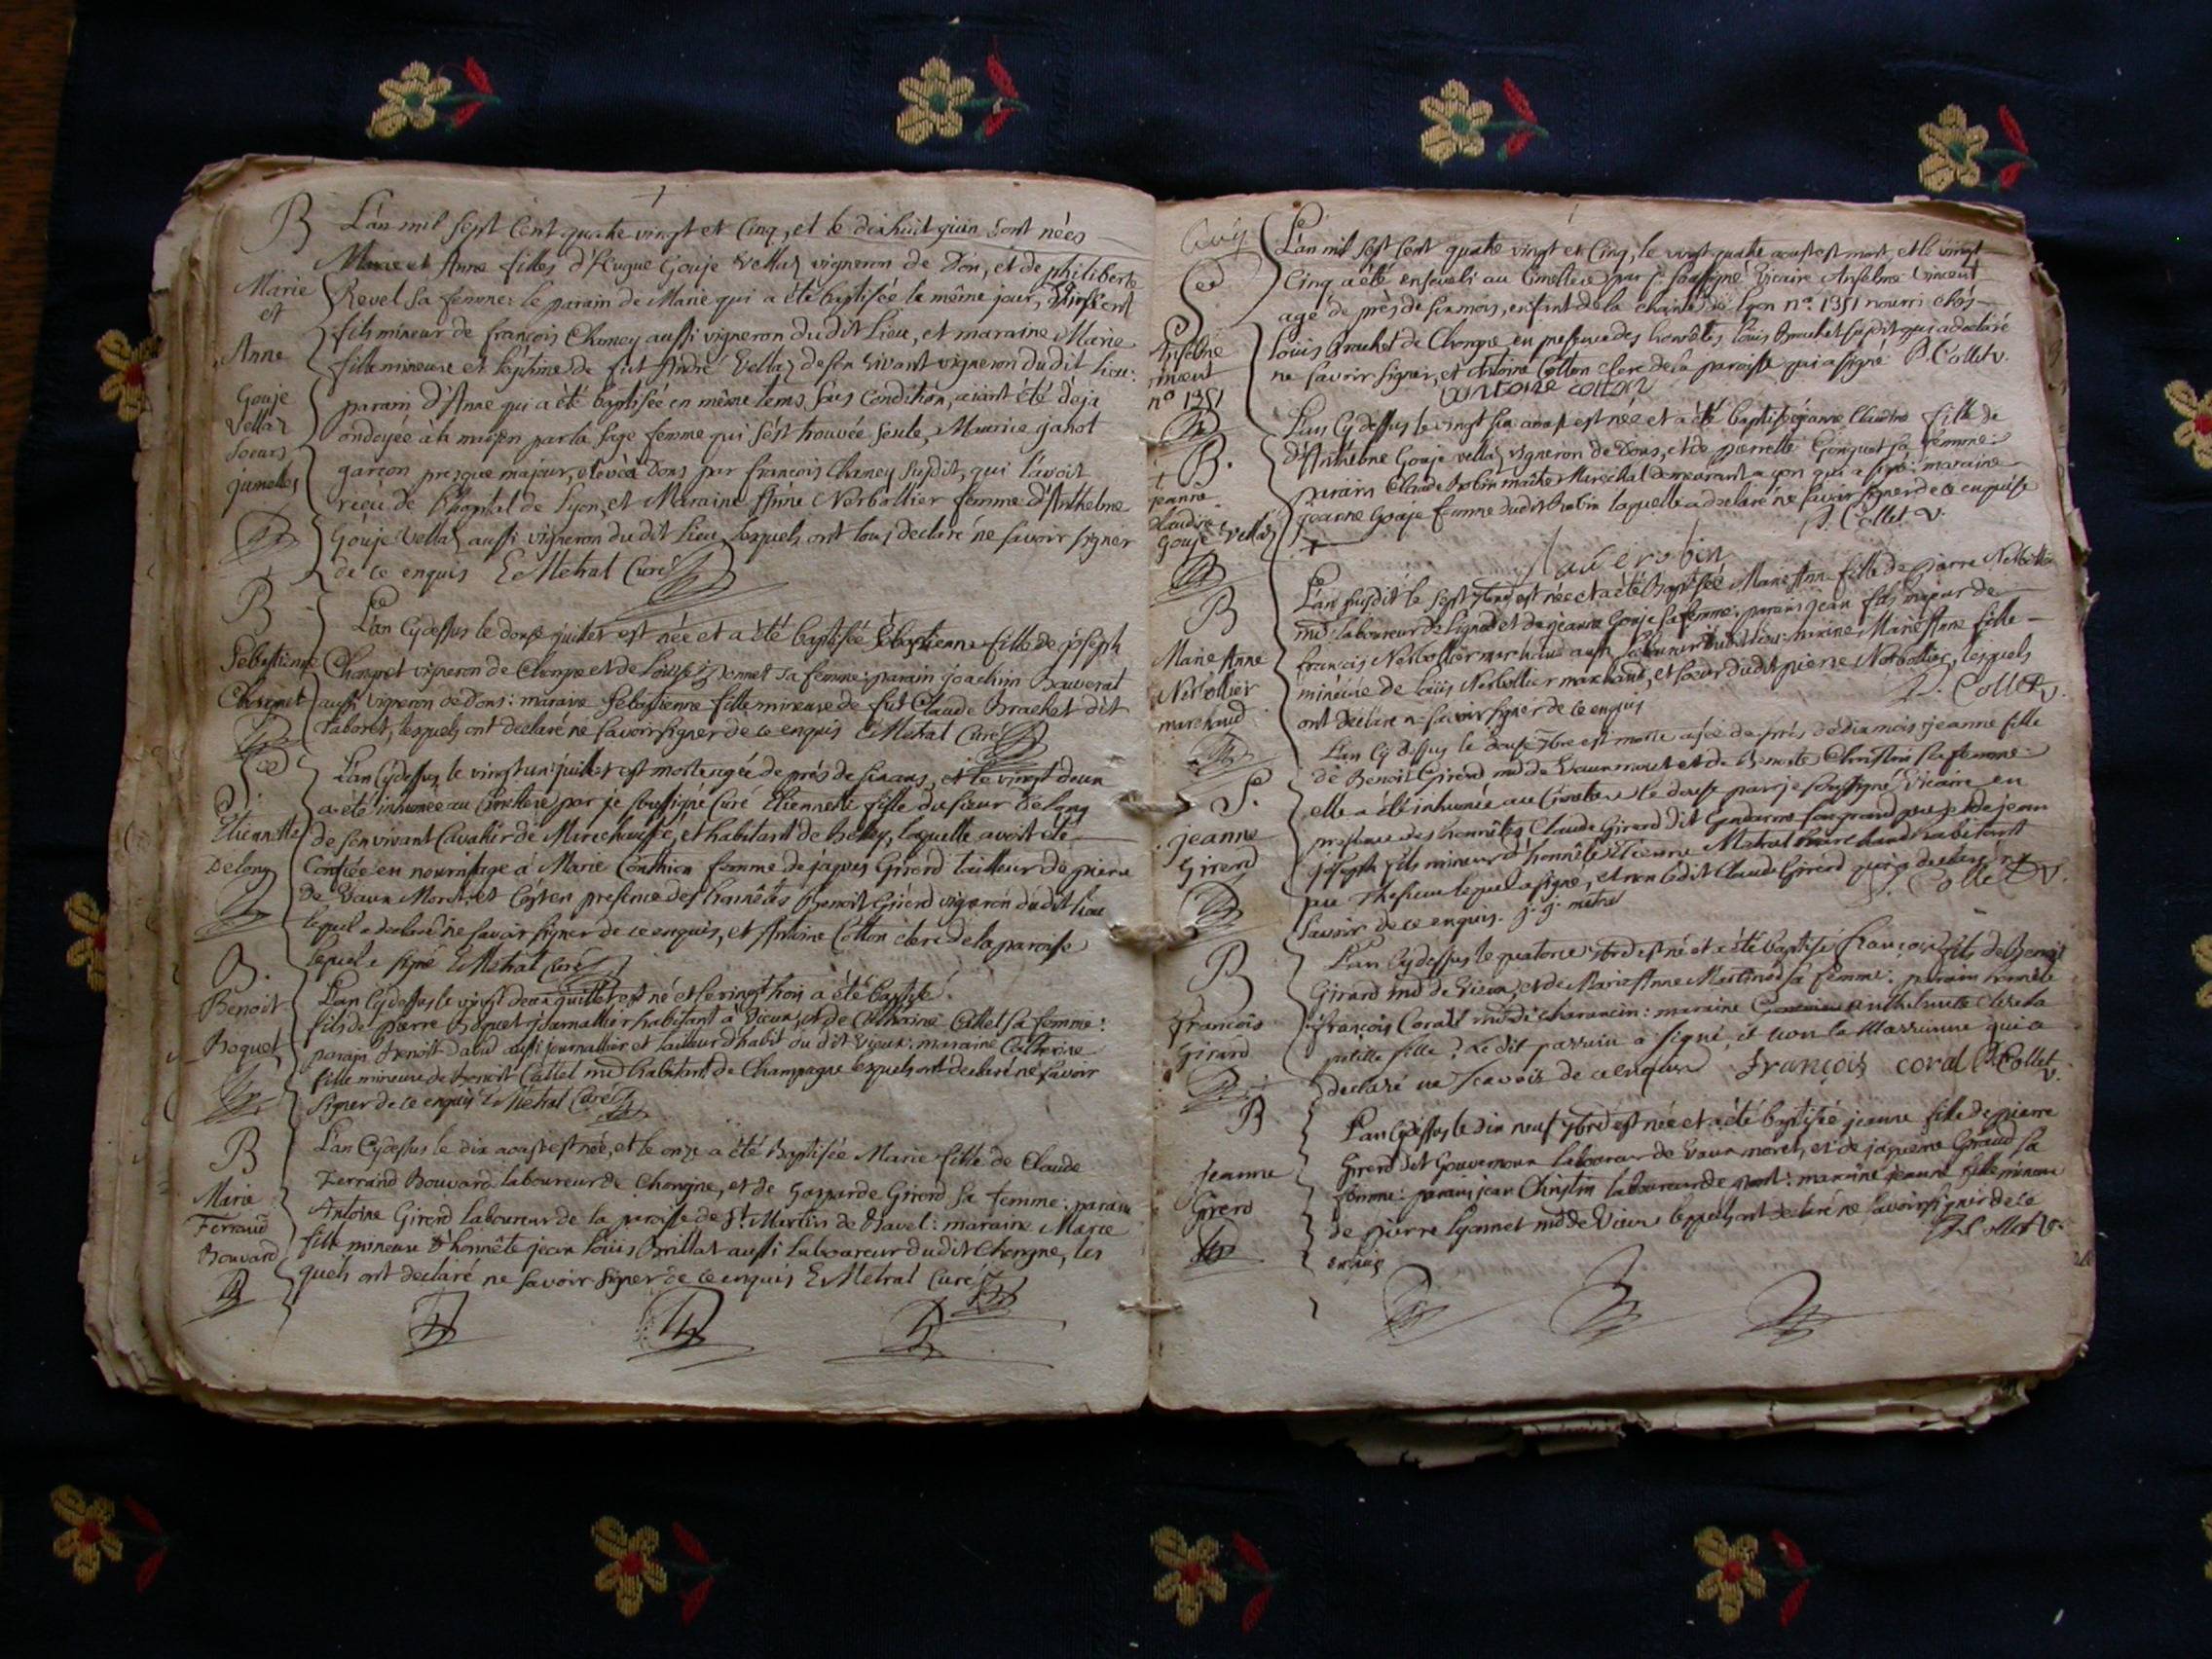 B
L'an mil sept cent quatre vingt et cinq, et le dixhuit juin sont nées
Marie et Anne filles d'hugue Gouje Vellaz vigneron de Don, et de philiberte
Marie
et
Anne
Gouje
Vellaz
soeurs
jumelles
Revel sa femme: le parain de Marie qui a été baptisée le même jour,
fils mineur de françois Chaney aussi vigneron dudit lieu, et maraine Marie
fille mineure et légitime de fut André Vellaz de son vivant vigneron du dit lieu:
parain d'Anne qui a été baptisée en même tems sous condition, aiant été déja
ondoyée à la maison par la sage femme qui s'est trouvée seule, Maurice janot
garçon presque majeur, élevé à Dons par françois Chaney susdit, qui l'avoit
reçu de l'hopital de Lyon, et Maraine Anne Norbollier femme d'Anthelme
Gouje Vellaz aussi vigneron du dit lieu, lesquels ont tous declaré ne savoir signer
de ce enquis E Metral Curé
B
Sebastienne
Chongnet
L'an cy dessus le douse juillet est née et a été baptisée Sebastienne fille de joseph
vigneron de Chongne et de Louise sa femme: parain joachim Bauverat
aussi vigneron de Dons: maraine Sebastienne fille mineure de fut Claude Brachet dit
Taboret, lesquels ont declaré ne savoir signer de ce enquis E Metral Curé
S
Etiennette
Delong
L'an cy dessus le vingt un juillet est morte agée de près de six ans, et le vingt deux
a été inhumée au Cimetiere par je soussigné Curé Etiennette fille du sieur Delong
de son vivant Cavalier de Marechaussée, et habitant de Belley, laquelle avoit été
Confiée en nourrissage à Marie Conthion femme de jaques Girerd tailleur de pierre
de Vaux Moret, et C'est en presence des honnêtes Benoit Girerd vigneron dudit lieu
lequel a declaré ne savoir signer de ce enquis, et Antoine Cotton clerc de la paroisse
lequel a signé E Metral Curé
B.
Benoit
Boquet
L'an cy dessus le vingt deux juillet est né et le vingt trois a été baptisé
fils de pierre Boquet journallier habitant à Vieux, et de Catherine Callet sa femme:
parain Benoit aussi journallier et tailleur d'habit du dit Vieux: maraine Catherine
fille mineure de Benoit Callet md habitant de Champagne lesquels ont declaré ne savoir
signer de ce enquis E Metral Curé
B
Marie
Ferrand
Bouvard
L'an Cydessus le dix aoust est née, et le onze a été Baptisée Marie fille de Claude
Ferrand Bouvard laboureur de Chongne, et de Gasparde Girerd sa femme: parain
Antoine Girerd laboureur de la paroisse de St Martin de Bavel: maraine Marie
fille mineure d'honnête jean Louis Brillat aussi laboureur dudit Chongne, les
quels ont declaré ne savoir signer de ce enquis E Metral Curé
L'an mil sept cent quatre vingt et cinq, le vingt quatre aoust est mort, et le vingt
cinq a été enseveli au Cimetiere par je soussigné Vicaire Anselme Vincent
Anselme
vincent
no 1351
agé de près de six mois, enfant de la charité de Lyon no. 1351 nourri chés
Louis Brachet de Chongne en presence des honnêtes Louis Brachet susdit qui a declaré
ne savoir signer, et Antoine Cotton clerc de la paroisse qui a signé P. Collet v.
antoine cotton
B.
jeanne
Claudine
Gouje Vellaz
L'an cy dessus le vingt six aoust est née et a été baptisée jeanne Claudine fille de
d'Anthelme Gouje Vellaz vigneron de Dons, et de pierrette sa femme:
parain Claude Robin maitre Marechal demeurant a qui a signé: maraine
jeanne Gouje femme dudit Robin laquelle a declaré ne savoir signer de ce enquise
P. Collet v.
B
Marie Anne
Norbollier
marchand
L'an susdit le sept 7bre est née et a été Baptisée Marie Anne fille de pierre Norbollier
md laboureur de et de jeanne Gouje sa femme: parain jean fils majeur de
françois Norbollier marchand aussi laboureur dudit lieu: maraine Marie Anne fille
mineure de Louis Norbollier marchand, et soeur dudit pierre Norbollier, lesquels
ont declaré ne savoir signer de ce enquis P. Collet v.
S.
jeanne
Girerd
L'an cy dessus le douse 7bre est morte agée de près de dix mois jeanne fille
de Benoit Girerd md de Vaux moret et de Benoite Christin sa femme:
elle a été inhumée au Cimetiere le douse par je soussigné Vicaire en
presence des honnêtes Claude Girerd dit Gendarme son grand pere et de jean
joseph fils mineur d'honnête Etienne Metral marchand habitant
au lequel a signé, et non ledit Claude Girerd qui a declaré ne
savoir de ce enquis. j. j. metral P. Collet v.
B
françois
Girard
L'an cy dessus le quatorse 7bre est né et a été baptisé françois fils de Benoit
Girard md de Vieux, et de Marie Anne Martinod sa femme: parain honnête
françois Coral md de Charancin: maraine
petitte fille: Le dit parrain a signé, et non la Marrainne qui a
declaré ne Scavoir de ce enquise françois coral P. Collet v.
B
jeanne
Girerd
L'an cy dessus le dix neuf 7bre est née et a été baptisée jeanne fille de pierre
Girerd dit Gouverneur laboureur de Vaux moret, et de jaquema Giraud sa
femme: parain jean Christin laboureur de: maraine jeanne fille mineure
de pierre Lyonnet md de Vieux lesquels ont declaré ne savoir signer de ce
enquis P. Collet v.